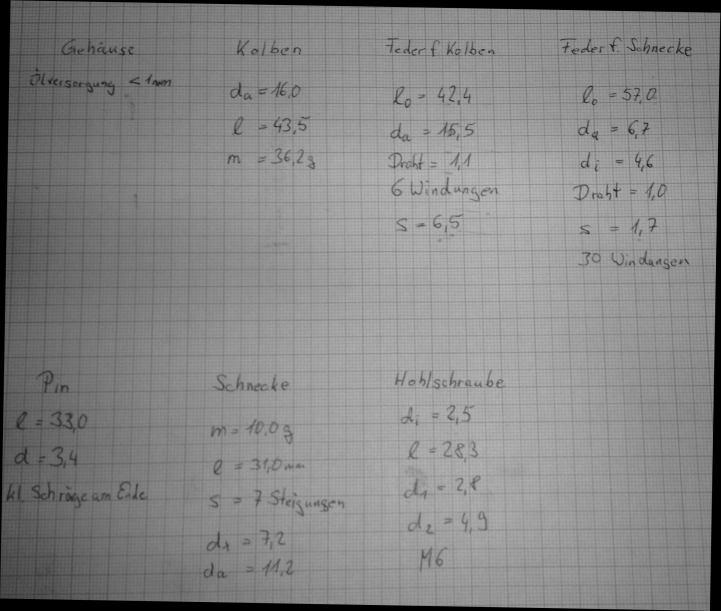 Gehäuse
Ölversorgung < 1mm
Kolben
da = 16,0
l = 43,5
m = 36,2g
Feder f. Kolben
l0 = 42,4
da = 15,5
Draht = 1,1
6 Windungen
s = 6,5
Feder f. Schnecke
l0 = 57,0
da = 6,7
di = 4,6
Draht = 1,0
s = 1,7
30 Windungen
Pin
l = 33,0
d = 3,4
kl. Schräge am Ende
Schnecke
m = 10,0g
l = 31,0mm
s = 7 Steigungen
d1 = 7,2
da = 11,2
Hohlschraube
di = 2,5
l = 28,3
d1 = 2,8
d2 = 4,9
M6